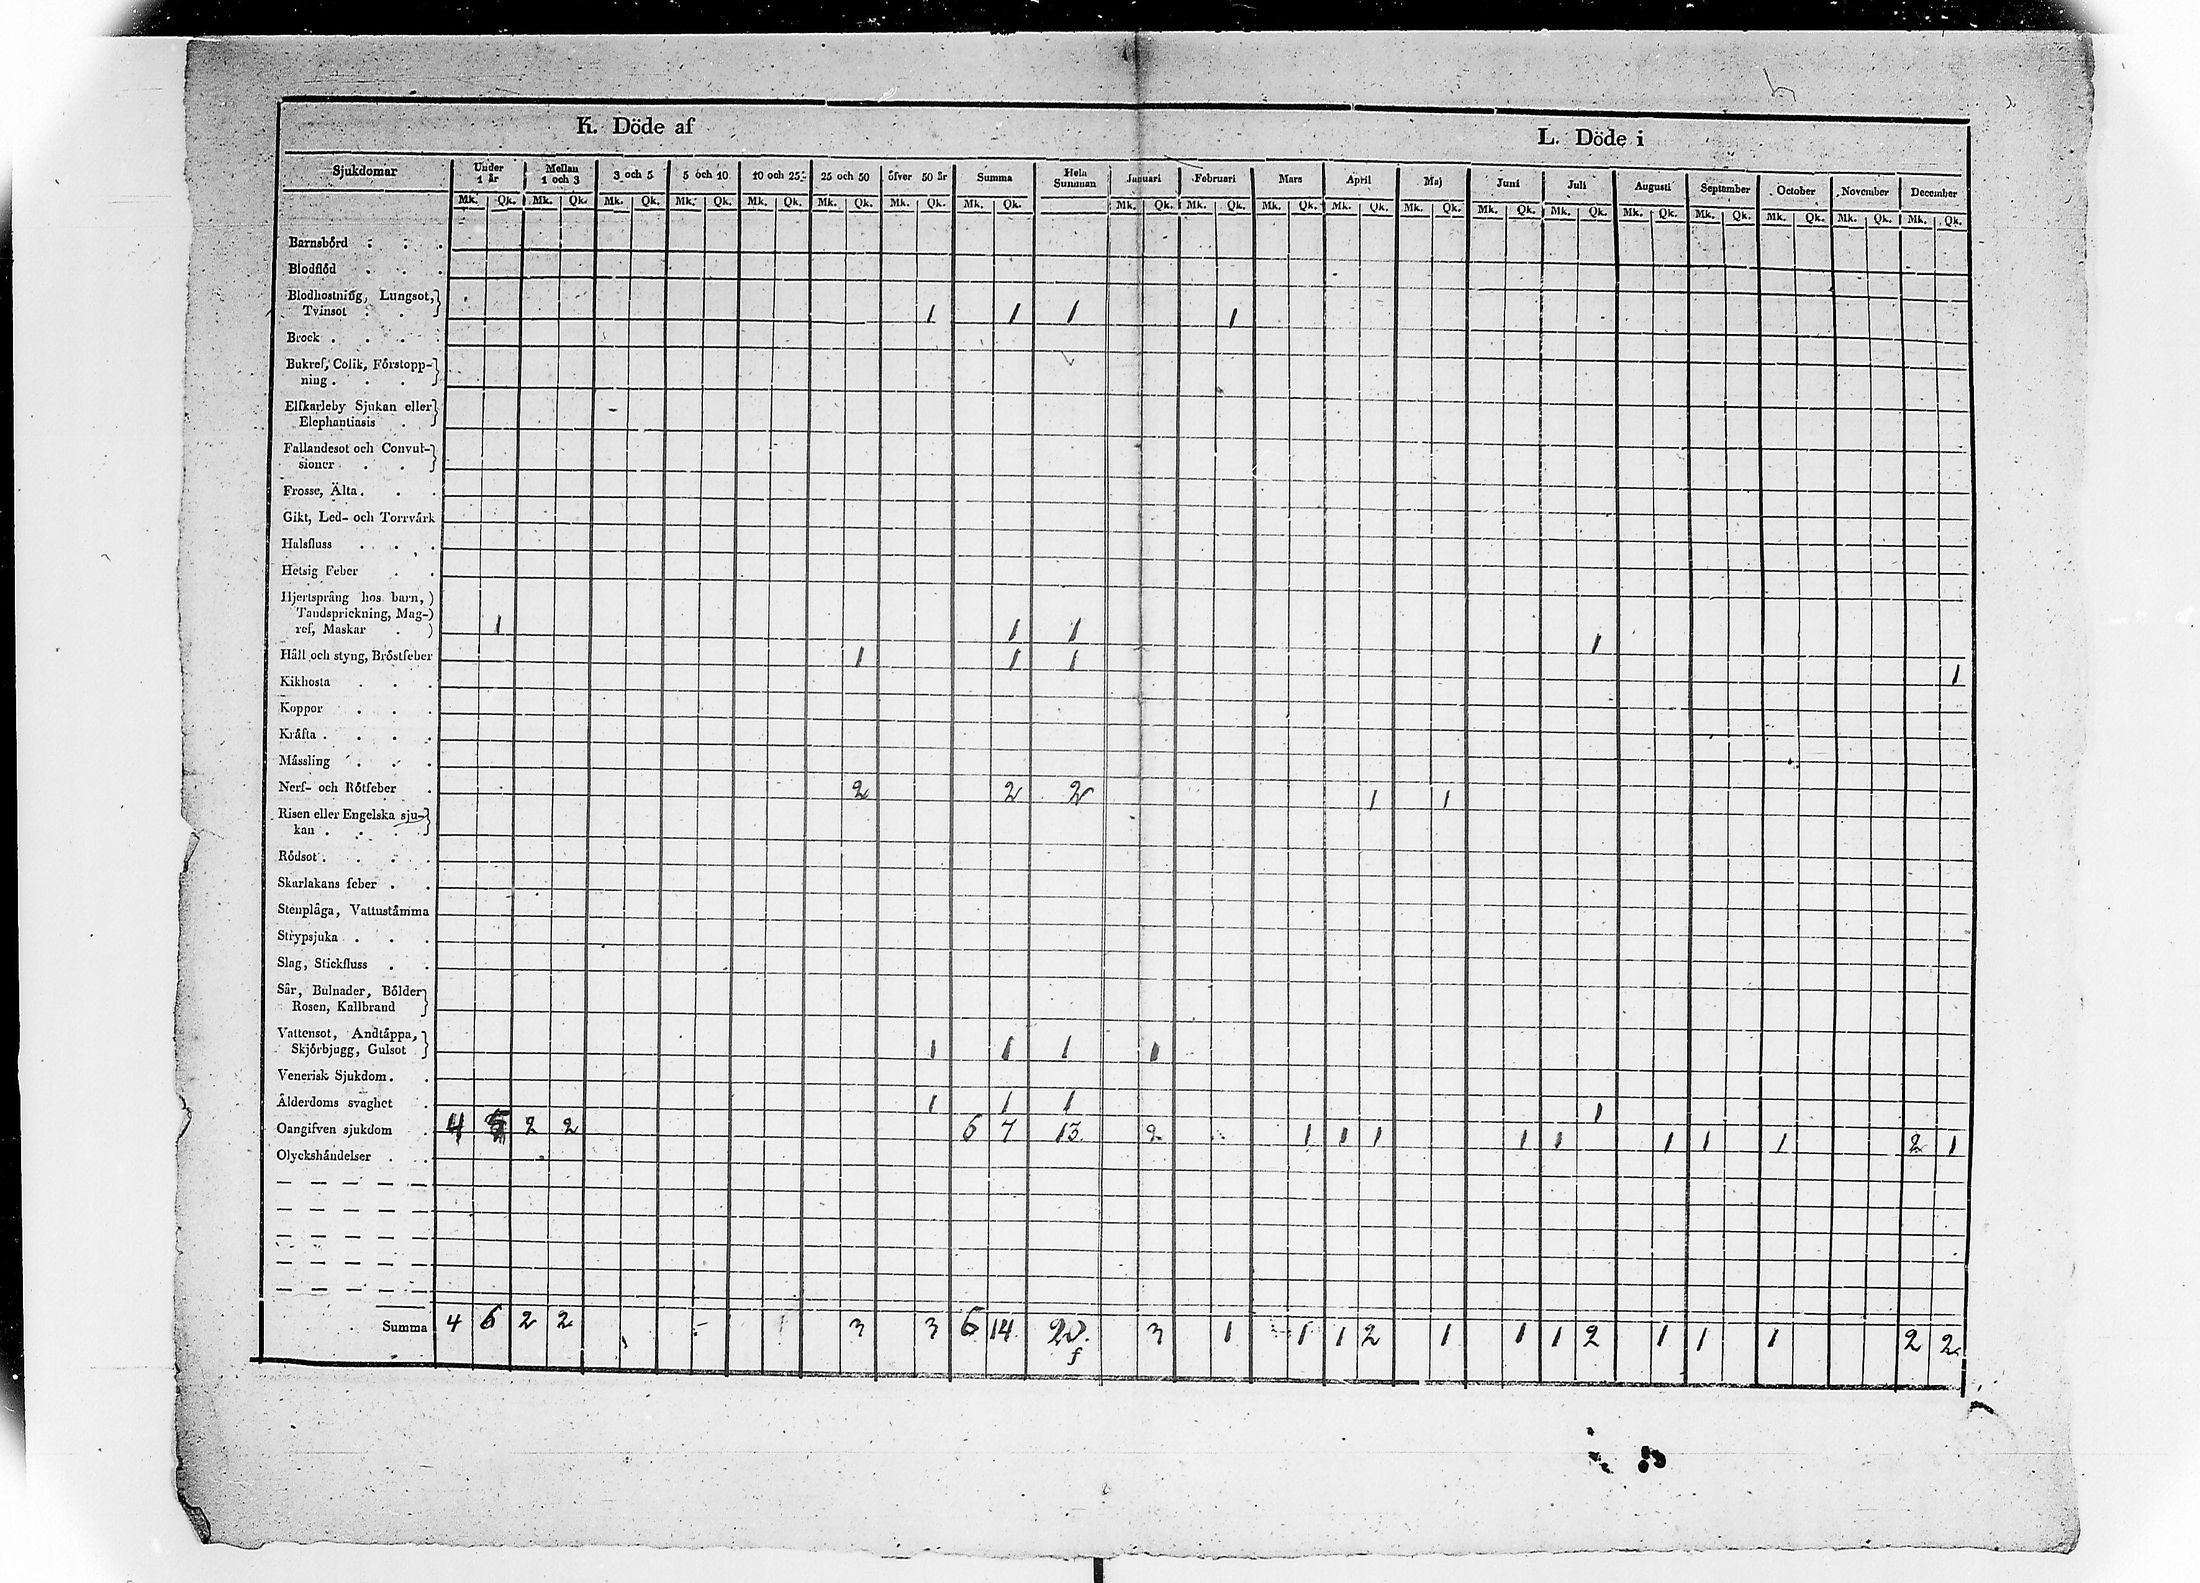 K. Döde af
L. Döde i
Sjukdomar Under 1 år Mellan 1 och 3 3 och 5 5 och 10 10 och 25 25 och 50 öfver 50 år Summa Hela Summan Januari Februari Mars April Maj Juni Juli Augusti September October November December
Mk. Qk. Mk. Qk. Mk. Qk. Mk. Qk. Mk. Qk. Mk. Qk. Mk. Qk. Mk. Qk. Mk. Qk. Mk. Qk. Mk. Qk. Mk. Qk. Mk. Qk. Mk. Qk. Mk. Qk. Mk. Qk. Mk. Qk. Mk. Qk. Mk. Qk. Mk. Qk.
Barnsbörd . . .
Blodflöd . . .
Blodhostning, Lungsot,
Tvinsot . . 1 1 1 1
Brock . . . .
Bukref, Colik, Förstopp-
ning . . . .
Elfkarleby Sjukan eller
Elephantiasis .
Fallandesot och Convul-
sioner . . .
Frosse, Älta . . .
Gikt, Led- och Torrvärk
Halsfluss . . .
Hetsig Feber . .
Hjertsprång hos barn,
Tandsprickning, Mag-
ref, Maskar . 1 1 1 1
Håll och styng, Bröstfeber 1 1 1 1
Kikhosta . . .
Koppor . . .
Kräfta . . . .
Mässling . . .
Nerf- och Rötfeber . 2 2 2 1 1
Risen eller Engelska sju-
kan . . . .
Rödsot . . . .
Skarlakans feber . .
Stenplåga, Vattustämma
Strypsjuka . . .
Slag, Stickfluss . .
Sår, Bulnader, Bölder
Rosen, Kallbrand
Vattensot, Andtäppa,
Skjörbjugg, Gulsot 1 1 1 1
Venerisk Sjukdom . .
Ålderdoms svaghet . 1 1 1 1
Oangifven sjukdom . 4 5 2 2 6 7 13. 2 1 1 1 1 1 1 1 1 2 1
Olyckshändelser . .
Summa 4 6 2 2 3 3 6 14 20. 3 1 1 1 2 1 1 1 2 1 1 1 2 2